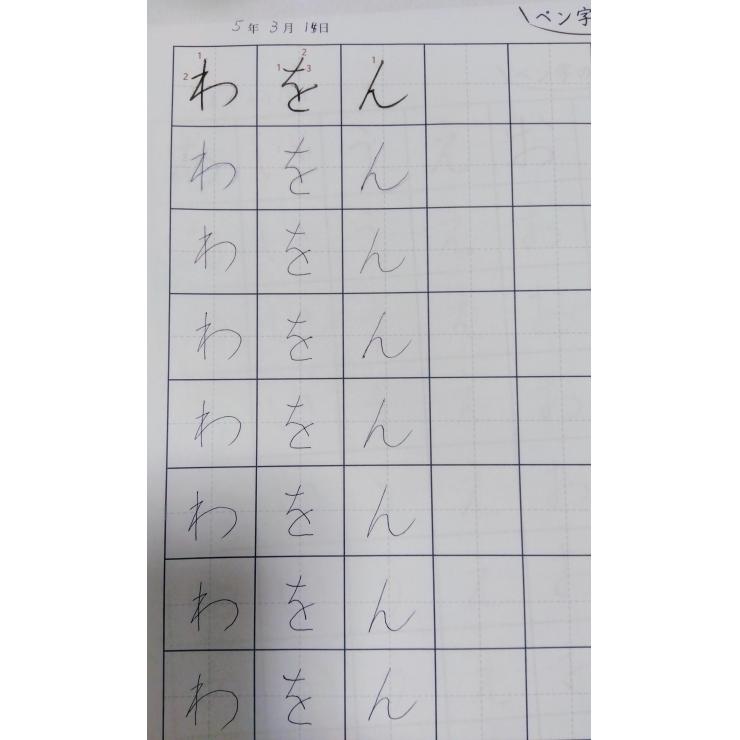 5年 3月 14日
ペン字
わ を ん
わ を ん
わ を ん
わ を ん
わ を ん
わ を ん
わ を ん
わ を ん